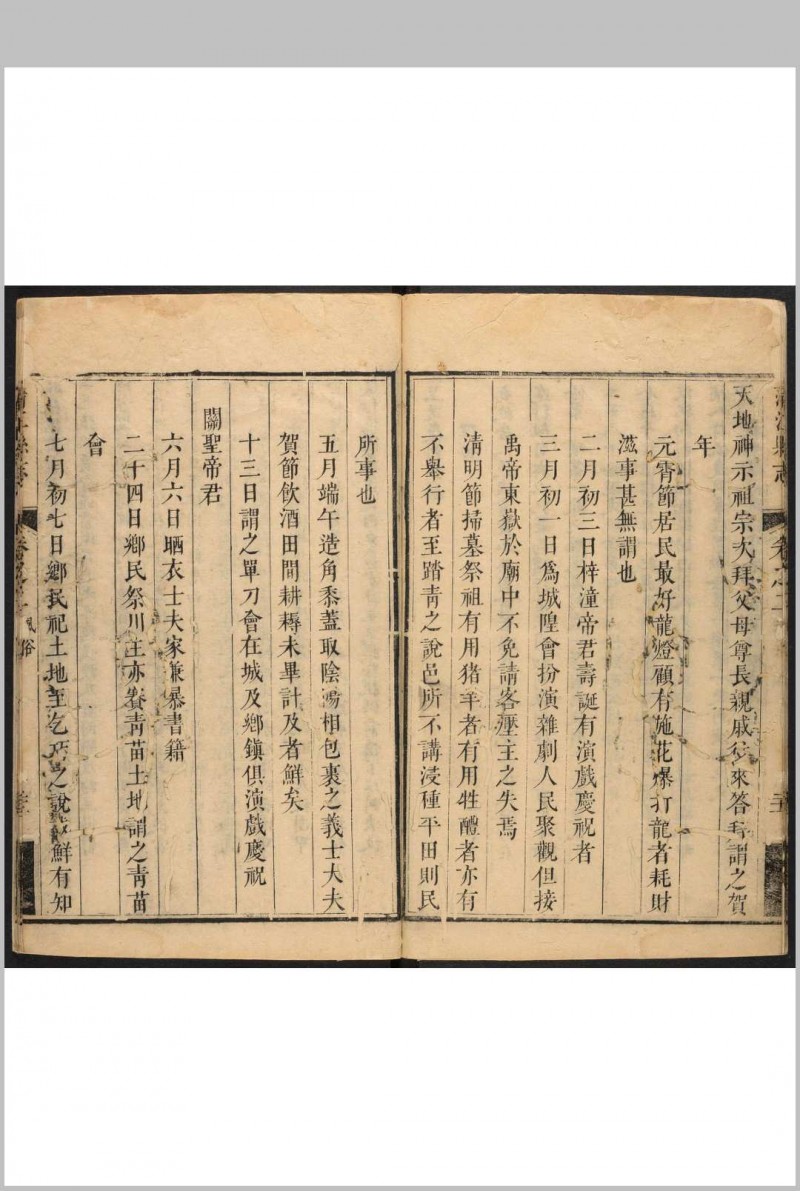 蒲江縣志 卷之二
天地神示祖宗次拜父母尊長親戚往來答拜謂之賀
年
元宵節居民最好龍燈顧有施花爆打龍者耗財
滋事甚無謂也
二月初三日梓潼帝君壽誕有演戲慶祝者
三月初一日爲城隍會扮演雜劇人民聚觀但接
禹帝東嶽於廟中不免請客壓主之失焉
清明節掃墓祭祖有用猪羊者有用牲醴者亦有
不舉行者至踏青之說邑所不講浸種平田則民
所事也
五月端午造角黍蓋取陰陽相包裹之義士大夫
賀節飲酒田間耕耨未畢計及者鮮矣
十三日謂之單刀會在城及鄉鎮俱演戲慶祝
關聖帝君
六月六日晒衣士夫家兼暴書籍
二十四日鄉民祭川主亦賽青苗土地謂之青苗
會
七月初七日鄉民祀土地至乞巧之說鮮有知
風俗